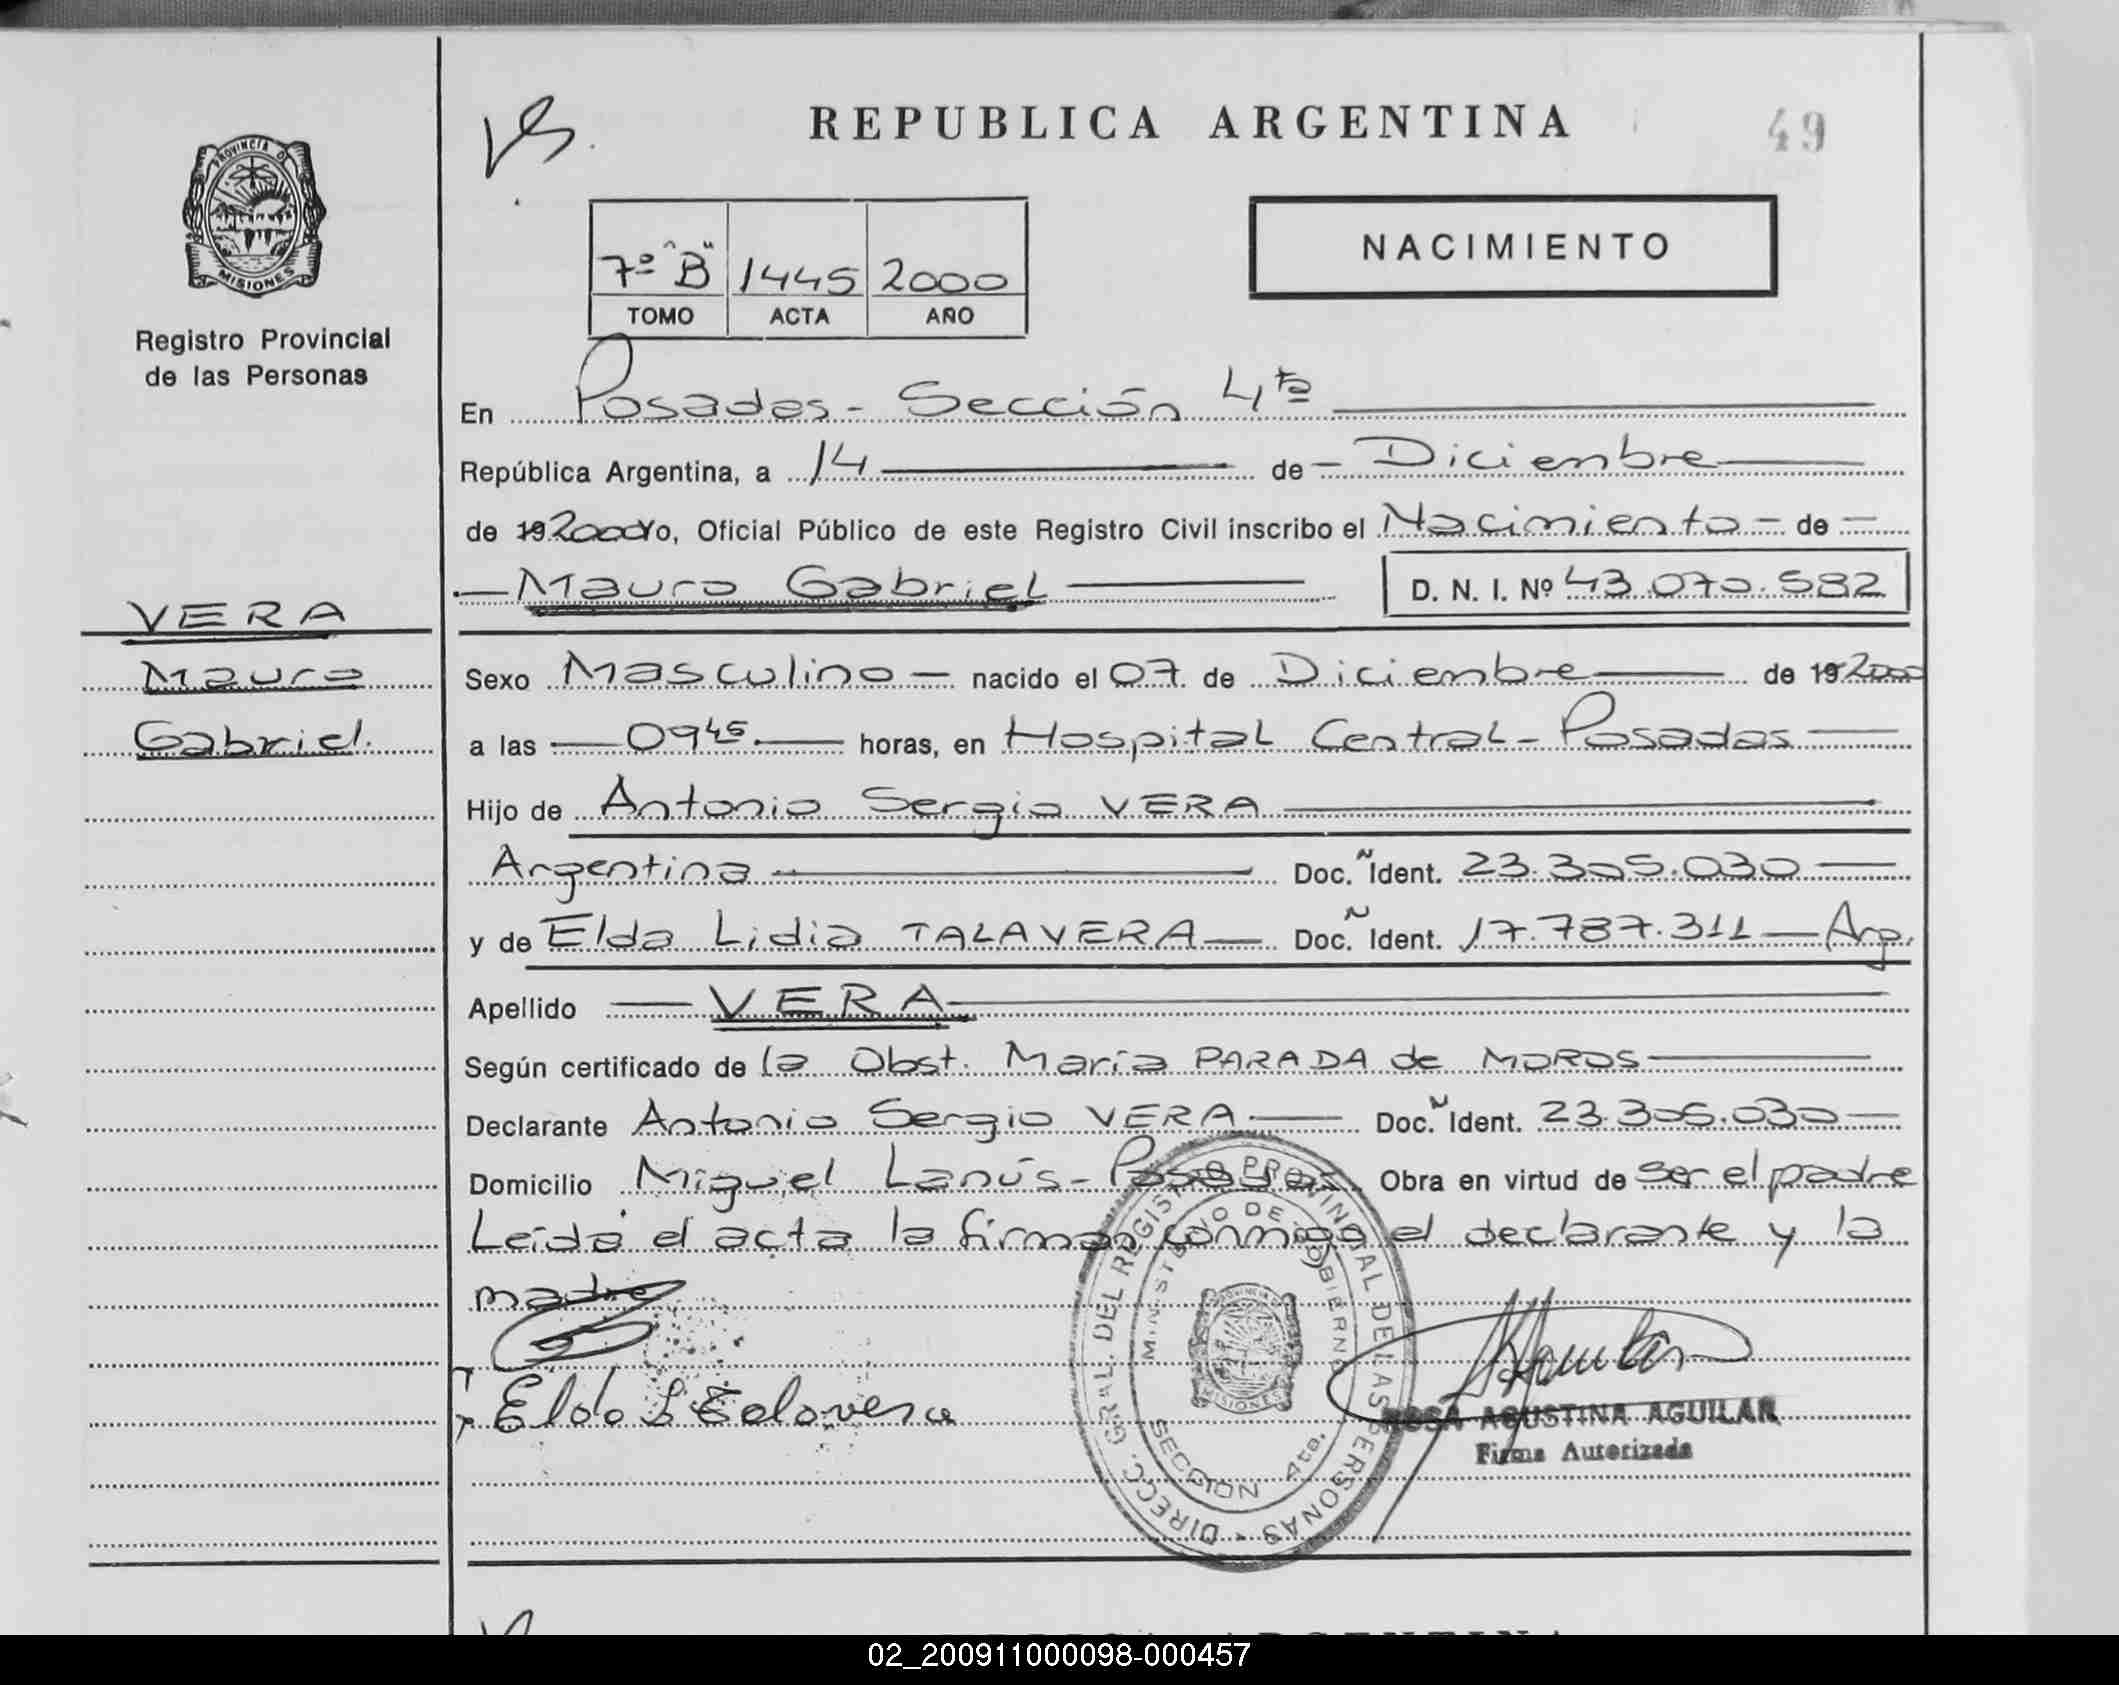 REPUBLICA ARGENTINA
49
PROVINCIA DE
MISIONES
Registro Provincial
de las Personas
NACIMIENTO
7º "B" 1445 2000
TOMO ACTA AÑO
En Posadas - Sección 4ta
República Argentina, a 14 de Diciembre
de 19 2000 Yo, Oficial Público de este Registro Civil inscribo el Nacimiento de
Mauro Gabriel D. N. I. Nº 43.070.582
VERA
Mauro
Gabriel.
Sexo Masculino nacido el 07 de Diciembre de 19 2000
a las 09 45 horas, en Hospital Central - Posadas
Hijo de Antonio Sergio VERA
Argentina Doc. N Ident. 23.305.030
y de Elda Lidia TALAVERA Doc. N Ident. 17.787.311 Arg.
Apellido VERA
Según certificado de la Obst. María PARADA de MOROS
Declarante Antonio Sergio VERA Doc. N Ident. 23.305.030
Domicilio Miguel Lanús - Posadas Obra en virtud de ser el padre
Leída el acta la firman conmigo el declarante y la
madre
Elda L Talavera
DIRECC. GRAL. DEL REGISTRO PROVINCIAL DE LAS PERSONAS
MINISTERIO DE GOBIERNO
SECCION 4ta.
MISIONES
ROSA AGUSTINA AGUILAR
Firma Autorizada
02_200911000098-000457